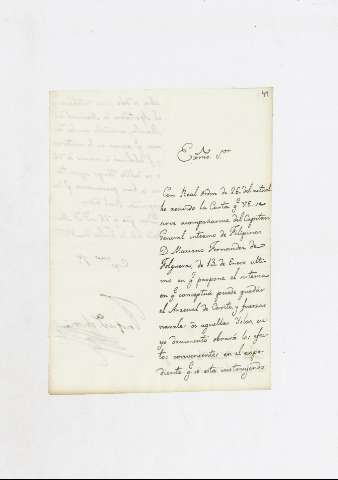 41
Exmo. Sor.
Con Real orden de 25 del actual
he recivido la Carta q.e V.E. se
sirve acompañarme del Capitan
General interino de Filipinas
D. Mariano Fernandez de
Folgueras, de 13 de Enero ulti-
mo en q.e propone el sistema
en q.e conceptua puede quedar
el Arsenal de Cavite, y fuerzas
navales de aquellas Islas, cu-
yo documento obrará los efec-
tos convenientes en el expe-
diente q.e se esta instruyendo